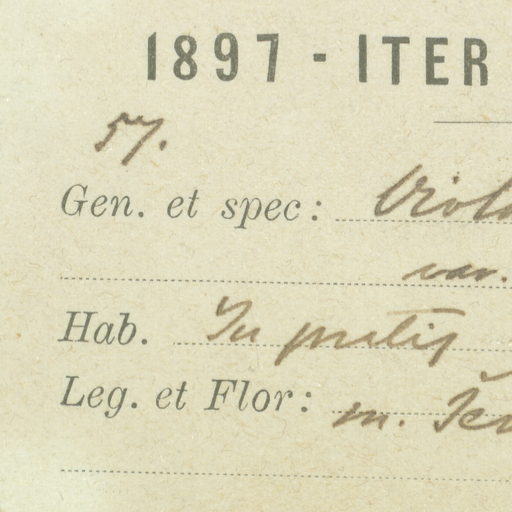 1897 - ITER
57.
Gen. et spec: Viola
var.
Hab. In pratis
Leg. et Flor:
m.